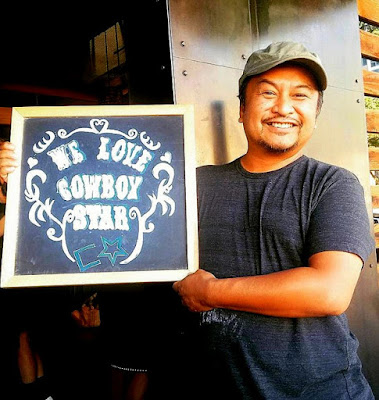 WE LOVE
COWBOY
STAR
C☆